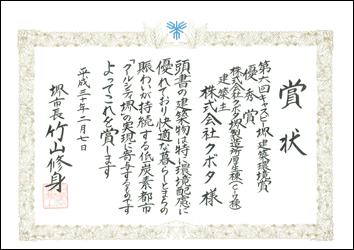 賞状
第六回キャスビー堺 建築環境賞
優秀賞
株式会社クボタ堺製造所厚生棟(C-1棟)
建築主
株式会社クボタ 様
頭書の建築物は特に環境配慮に
優れており快適な暮らしとまちの
賑わいが持続する低炭素都市
「クールシティ堺」の実現に寄与するものです
よってこれを賞します
平成三十年二月一日
堺市長 竹山修身